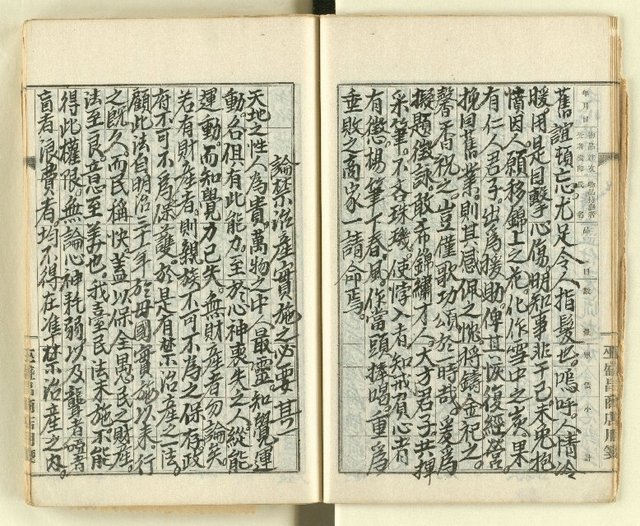 舊誼頓忘尤足令人指髮也嗚呼人情冷
暖用是目擊心傷明知事非干己未免抱
憤因人願移錦上之花化作雪中之炭果
有仁人君子出為援助俾其恢復經營
挽回舊業則其感佩之忱將鑄金祀之
馨香祝之豈僅歌功頌於一時哉爰為
擬題徵詠敢布錦繡才人大方君子共揮
采筆不吝珠璣使悖入者知戒負心者
有懲楊筆下春風作當頭棒喝重為
垂敗之商家一請命焉
論禁治產實施之必要 其一
天地之性人為貴萬物之中人最靈知覺運
動各俱有此能力至於心神喪失之人縱能
運動而知覺力已失無財產者勿論矣
若有財產者則親族不可不為之保存政
府不可不為保護於是有禁治產之一法
顧此法自明治三十一年於母國實施以來行
之既久而民稱快蓋以保全愚民之財產
法至良意至美也我臺民法未施不能
得此權限無論心神耗弱以及聾者啞者
盲者浪費者均不得在準禁治產之內